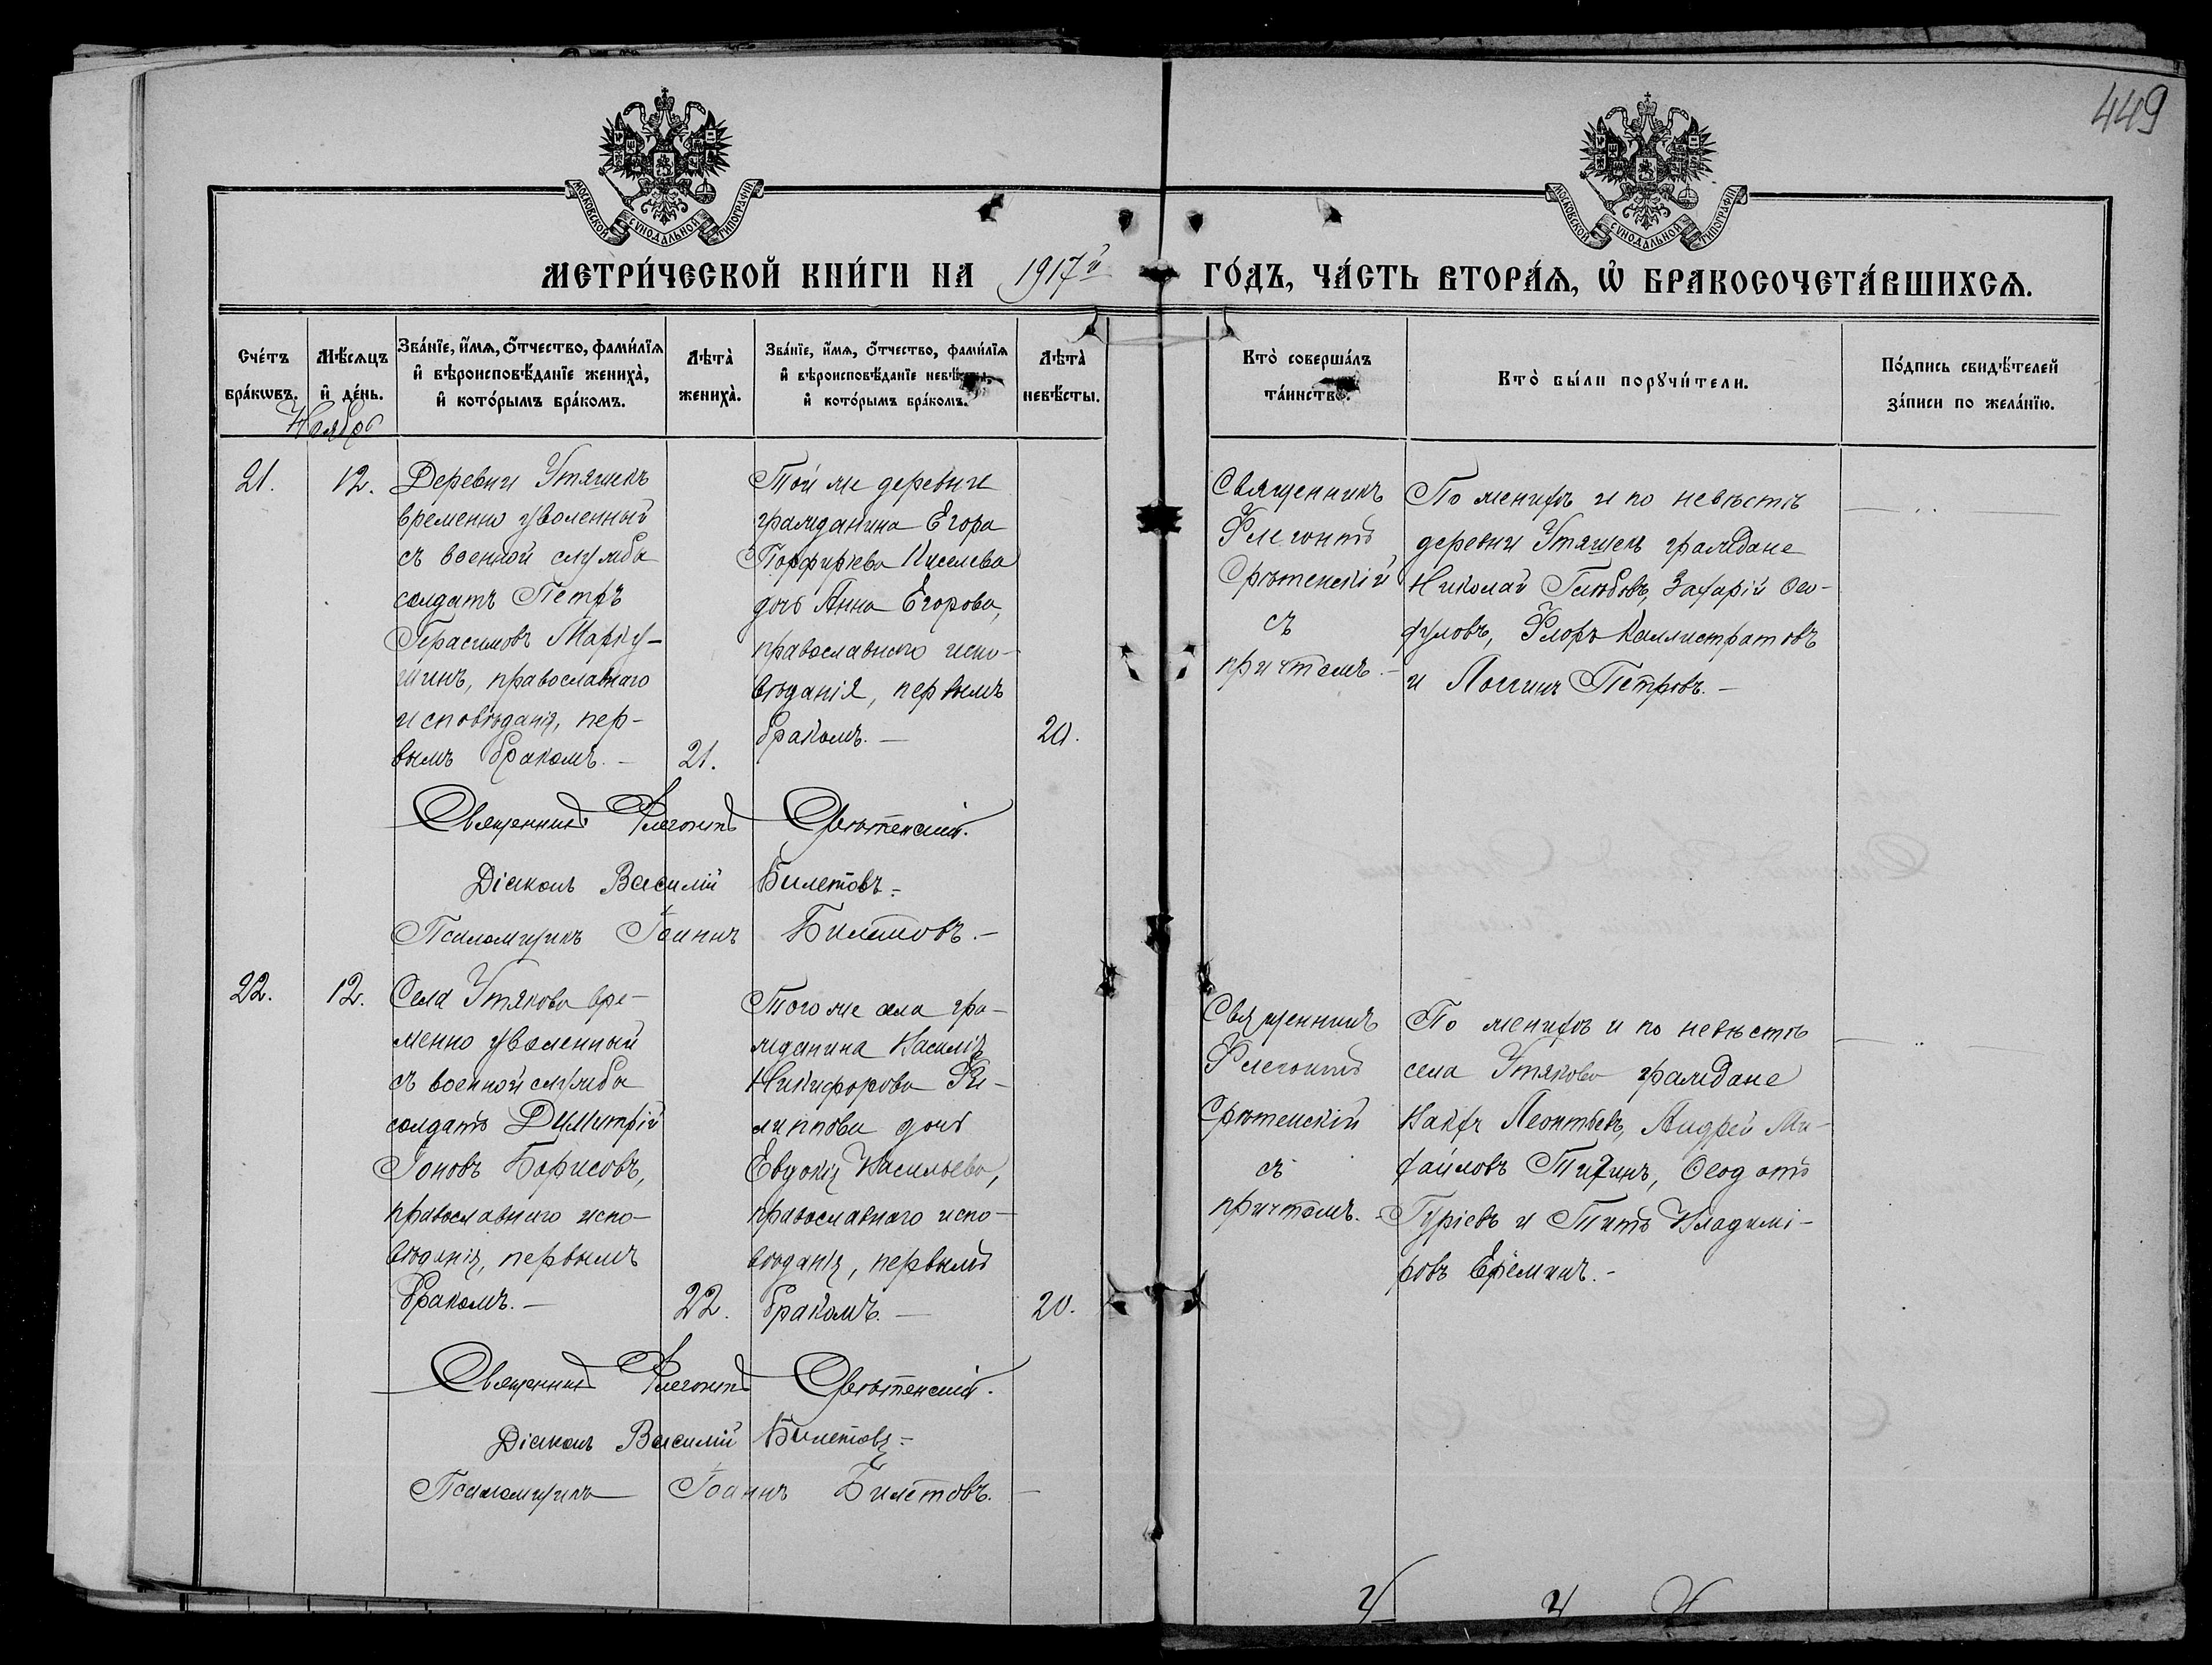 449
МОСКОВСКОЙ СѴНОДАЛЬНОЙ ТИПОГРАФІИ
МОСКОВСКОЙ СѴНОДАЛЬНОЙ ТИПОГРАФІИ
МЕТРИ́ЧЕСКОЙ КНИ́ГИ НА 1917й ГО́ДЪ, ЧА́СТЬ ВТОРА́Ѧ, Ѡ҆ БРАКОСОЧЕТА́ВШИХСѦ.
Сче́тъ бра́кωвъ.
Мѣ́сяцъ и҆ де́нь.
Зва́нїе, и҆́мѧ, ѻ҆́тчество, фами́лїѧ
и҆ вѣроисповѣ́данїе жениха̀,
и҆ кото́рымъ бра́комъ.
Лѣта̀ жениха̀.
Зва́нїе, и҆́мѧ, ѻ҆́тчество, фами́лїѧ
и҆ вѣроисповѣ́данїе невѣ́сты,
и҆ кото́рымъ бра́комъ.
Лѣта̀ невѣ́сты.
Кто̀ соверша́лъ
та́инство.
Кто̀ бы́ли порꙋчи́тели.
По́дпись свидѣ́телей
за́писи по жела́нїю.
Ноябрь
21.
12.
Деревни Утяшекъ
временно уволенный
съ военной службы
солдатъ Петръ
Герасимовъ
православнаго
исповѣданія, пер-
вымъ бракомъ. –
21.
Той же деревни
гражданина Егора
Порфирьева Киселева
дочь Анна Егорова,
православнаго испо-
вѣданія, первымъ
бракомъ. –
20.
Священникъ
Флегонтъ
Срѣтенскій
съ
причтомъ. –
По женихѣ и по невѣстѣ
деревни Утяшекъ граждане
Николай Глѣбовъ, Захарій Ѳео-
фуловъ, Флоръ Каллистратовъ
и Логгинъ Петровъ. –
Священникъ Флегонтъ Срѣтенскій.
Діаконъ Василій Билетовъ. –
Псаломщикъ Іоаннъ Билетовъ. –
22.
12.
Села Утяково вре-
менно уволенный
съ военной службы
солдатъ Димитрій
Іоновъ Борисовъ,
православнаго испо-
вѣданія, первымъ
бракомъ. –
22.
Того же села гра-
жданина Василія
Никифорова Фи-
липпова дочь
Евдокія Васильева,
православнаго испо-
вѣданія, первымъ
бракомъ. –
20.
Священникъ
Флегонтъ
Срѣтенскій
съ
причтомъ. –
По женихѣ и по невѣстѣ
села Утяково граждане
Вакхъ Леонтьевъ, Андрей Ми-
хайловъ Ѳеодотъ
Гуріевъ и Титъ Владимі-
ровъ Ереминъ. –
Священникъ Флегонтъ Срѣтенскій.
Діаконъ Василій Билетовъ. –
Псаломщикъ Іоаннъ Билетовъ. –